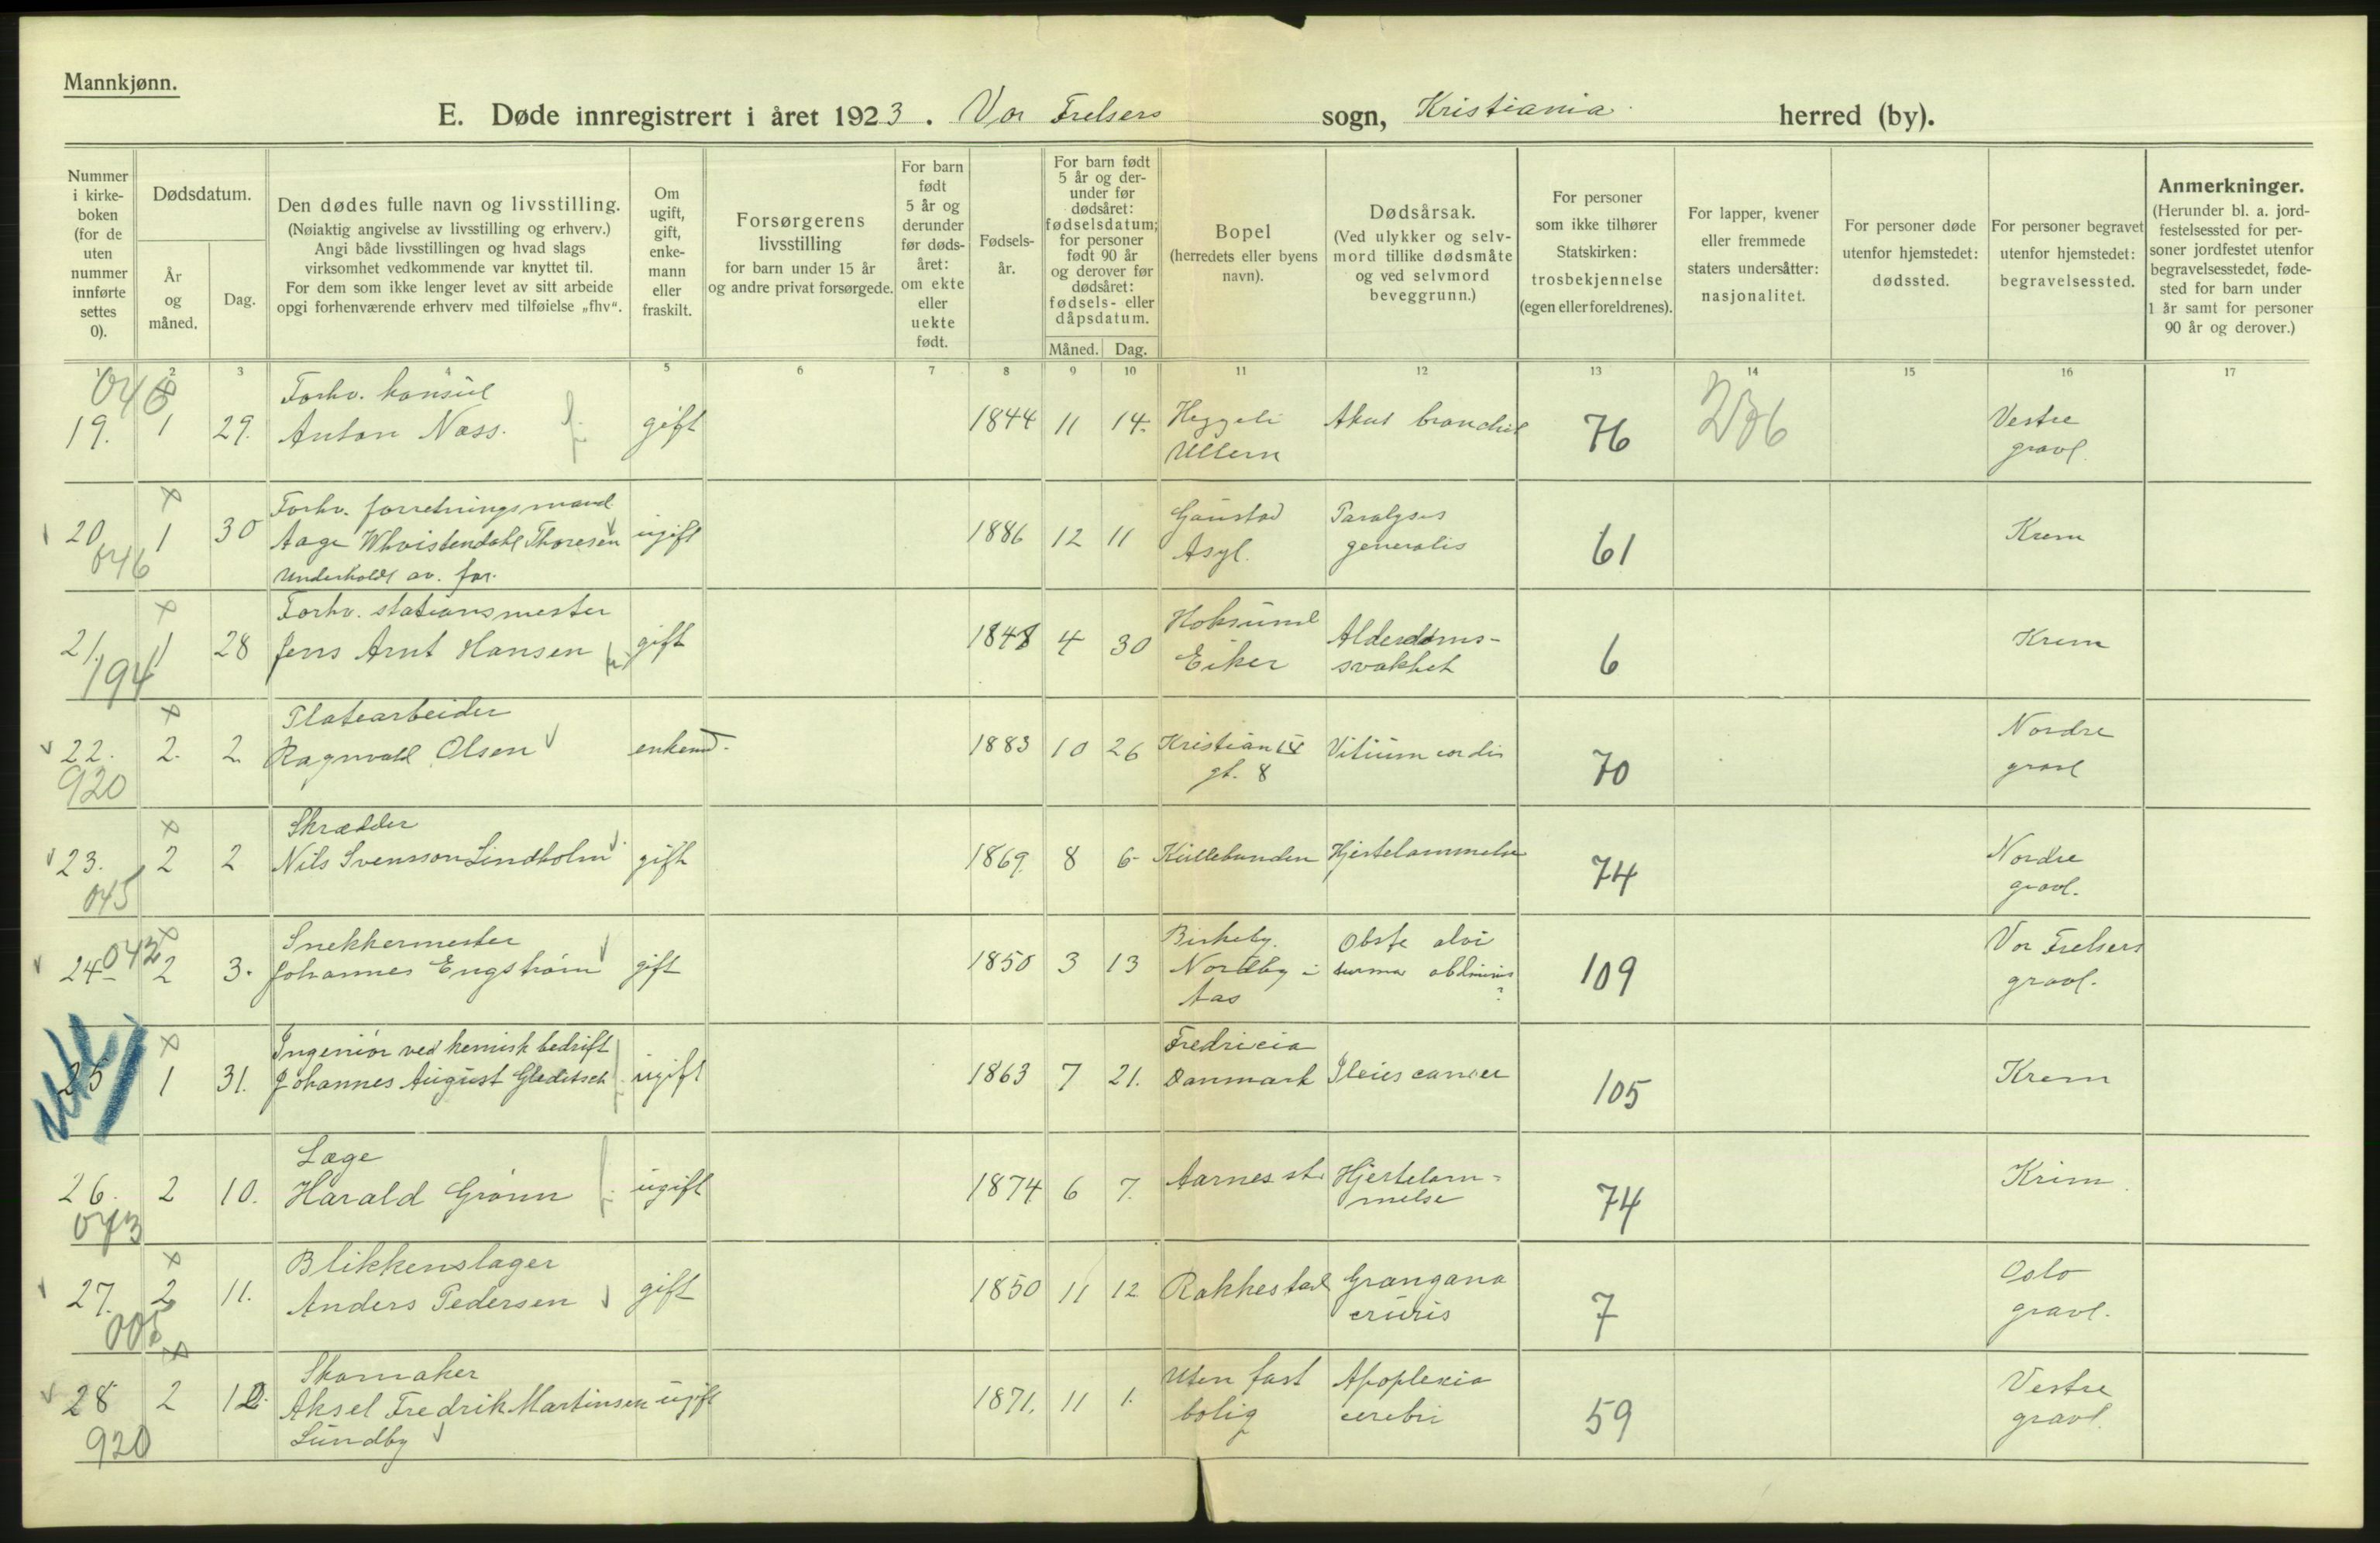 Mannkjønn.
E. Døde innregistrert i året 1923. Vor Frelsers sogn, Kristiania herred (by).
Nummer i kirke-boken (for de uten nummer innførte settes 0).
Dødsdatum.
År og måned.
Dag.
Den dødes fulle navn og livsstilling.
(Nøiaktig angivelse av livsstilling og erhverv.)
Angi både livsstillingen og hvad slags
virksomhet vedkommende var knyttet til.
For dem som ikke lenger levet av sitt arbeide
opgi forhenværende erhverv med tilføielse „fhv“.
Om ugift, gift, enke-mann eller fraskilt.
Forsørgerens
livsstilling
for barn under 15 år
og andre privat forsørgede.
For barn født 5 år og derunder før døds-året: om ekte eller uekte født.
Fødsels-år.
For barn født 5 år og der-under før dødsåret: fødselsdatum; for personer født 90 år og derover før dødsåret: fødsels- eller dåpsdatum.
Måned. Dag.
Bopel
(herredets eller byens navn).
Dødsårsak.
(Ved ulykker og selv-mord tillike dødsmåte og ved selvmord beveggrunn.)
For personer som ikke tilhører Statskirken: trosbekjennelse (egen eller foreldrenes).
For lapper, kvener eller fremmede staters undersåtter: nasjonalitet.
For personer døde utenfor hjemstedet: dødssted.
For personer begravet utenfor hjemstedet: begravelsessted.
Anmerkninger.
(Herunder bl. a. jord-festelsessted for per-soner jordfestet utenfor begravelsesstedet, føde-sted for barn under 1 år samt for personer 90 år og derover.)
1 2 3 4 5 6 7 8 9 10 11 12 13 14 15 16 17
Forhv. konsul
19. 1 29. Anton Næss. gift 1844 11 14. Heggeli Ullern Akut 76 236 Vestre gravl.
Forhv. forretningsmand
20 1 30 Aage Whvistendahl Thoresen ugift 1886 12 11 Gaustad Asyl. Paralyses generalis 61 Krem
046 Underholdt av. far.
Forhv. stationsmester
21. 1 28 Jens Arnt Hansen gift 1848 4 30 Hoksund Eiker Alderdoms-svakhet 6 Krem
194
Platearbeider
22. 2. 2. Ragnvald Olsen enkemd. 1883 10 26 Kristian IV gt. 8 Vitium cordis 70 Nordre gravl
920
Skrædder
23. 2 2 Nils Svensson Lindholm gift 1869. 8 6 Hjertelammelse 74 Nordre gravl.
045
Snekkermester
24 042 2 3. Johannes Engstrøm gift 1850 3 13 Birkeby. Nordby i Aas 109 Vor Frelsers gravl.
Ingeniør ved kemisk bedrift
25 1 31. Johannes August Gleditsch ugift 1863 7 21. Fredricia Danmark Ileus cancer 105 Krem
Læge
26. 2 10. Harald Grønn ugift 1874 6 7. Aarnes st. Hjertelam-melse 74 Krim.
043
Blikkenslager
27. 2 11. Anders Pedersen gift 1850 11 12 Rakkestad Grangana cruris 7 Oslo gravl.
Skomaker
28 2 12. Aksel Fredrik Martinsen ugift 1871. 11 1. Uten fast bolig Apoplexia cerebri 59 Vestre gravl.
920 Lundby